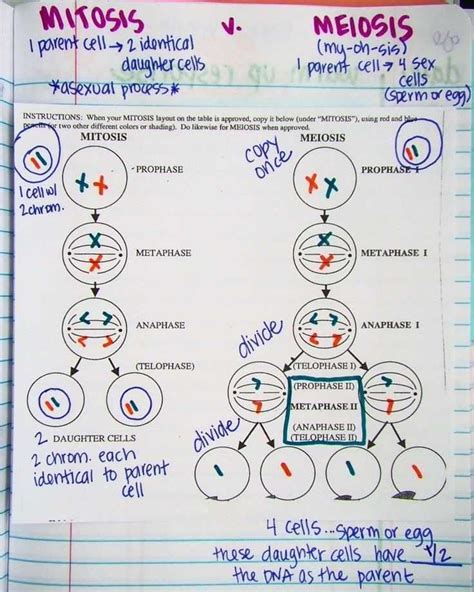 MITOSIS v. MEIOSIS
1 parent cell → 2 identical
daughter cells
*asexual process*
(my-oh-sis)
1 parent cell → 4 sex
cells
(sperm or egg)
INSTRUCTIONS: When your MITOSIS layout on the table is approved, copy it below (under "MITOSIS"), using red and blue
(or two other different colors or shading). Do likewise for MEIOSIS when approved.
MITOSIS
1 cell w/
2 chrom.
PROPHASE
METAPHASE
ANAPHASE
(TELOPHASE)
2 DAUGHTER CELLS
2 chrom. each
identical to parent
cell
MEIOSIS
copy
once
PROPHASE I
METAPHASE I
ANAPHASE I
divide
(TELOPHASE I)
(PROPHASE II)
METAPHASE II
(ANAPHASE II)
(TELOPHASE II)
divide
4 cells...sperm or egg
these daughter cells have 1/2
the DNA as the parent